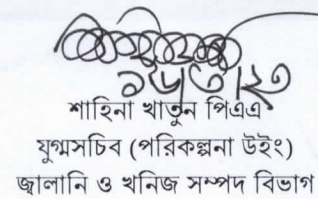 শাহিনা খাতুন পিএএ
যুগ্মসচিব (পরিকল্পনা উইং)
জ্বালানি ও খনিজ সম্পদ বিভাগ